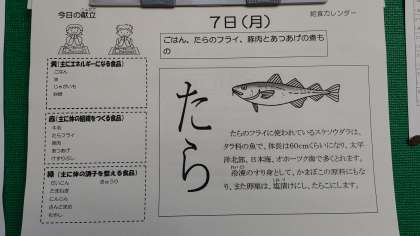 今日の献立
7日(月)
給食カレンダー
ごはん、たらのフライ、豚肉とあつあげの煮も
の
黄(主にエネルギーになる食品)
ごはん
油
じゃがいも
砂糖
赤(主に体の組織をつくる食品)
牛乳
たらフライ
豚肉
あつあげ
けずりぶし
緑(主に体の調子を整える食品)
だいこん
きゅうり
たまねぎ
にんじん
さんどまめ
たら
たらのフライに使われているスケソウダラは、
タラ科の魚で、体長は60cmくらいになり、太平
洋北部、日本海、オホーツク海で多くとれます。
冷凍のすり身として、かまぼこの原料にもな
り、また卵巣は、塩漬けにし、たらこにします。